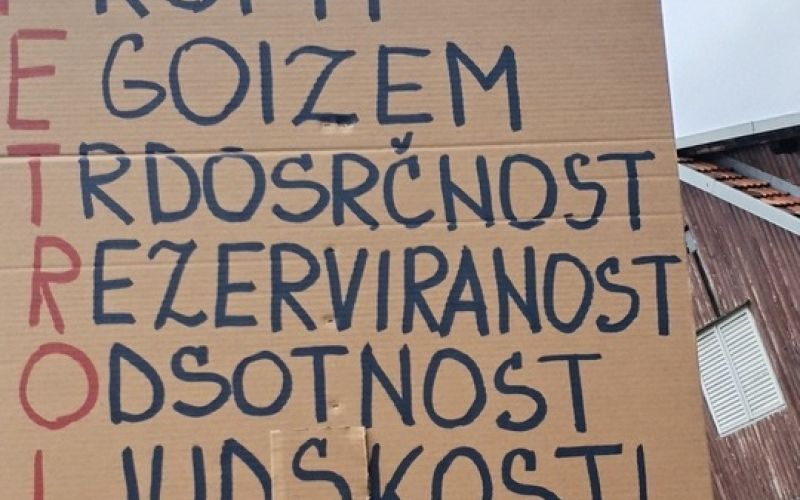 EGOIZEM
TRDOSRČNOST
REZERVIRANOST
ODSOTNOST
LJUDSKOSTI